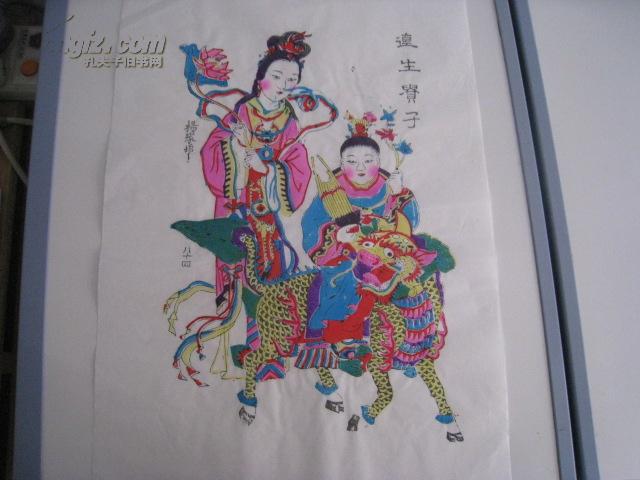 孔夫子旧书网
連生貴子
楊家埠
八十四